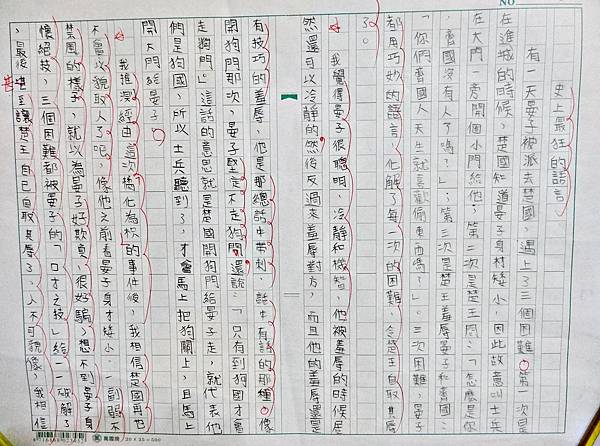 NO.
史上最狂的語言
有一天晏子被派去楚國，遇上了三個困難。第一次是
在進城的時候，楚國知道晏子身材矮小，因此故意叫士兵
在大門一旁開個小門給他；第二次是楚王問：「齊國怎麼
，齊國沒有人了嗎？」；第三次是楚王羞辱晏子和齊國：
「你們齊國人天生就喜歡偷東西嗎？」。三次困難，晏子
都用巧妙的語言，化解了每一次的困難，令楚王自取其辱
我覺得晏子很聰明、冷靜和機智，他被羞辱的時候居
然還可以冷靜的然後反過來羞辱對方，而且他的羞辱還是
有技巧的羞辱，他是那總話中帶刺，話中有話的那種。像
開狗門那次，晏子堅定不走狗門還說：「只有到狗國才會
走狗門」這話的意思就是楚國開狗門給晏子走，就代表他
們是狗國，所以士兵聽到了，才會馬上把狗關上，且馬上
開大門給晏子。
我推測經由這次橘化為枳的事件後，我相信楚國再也
不會以貌取人了吧，像他之前看晏子身才矮小，一副弱不
禁風的樣子，就以為晏子好欺負、很好騙，想不到晏子身
懷絕技，三個困難都被晏子的「口才之技」給一一破解了
，最後甚至讓楚王自己自取其辱了，人不可貌像，我相信
20 X 25 = 500